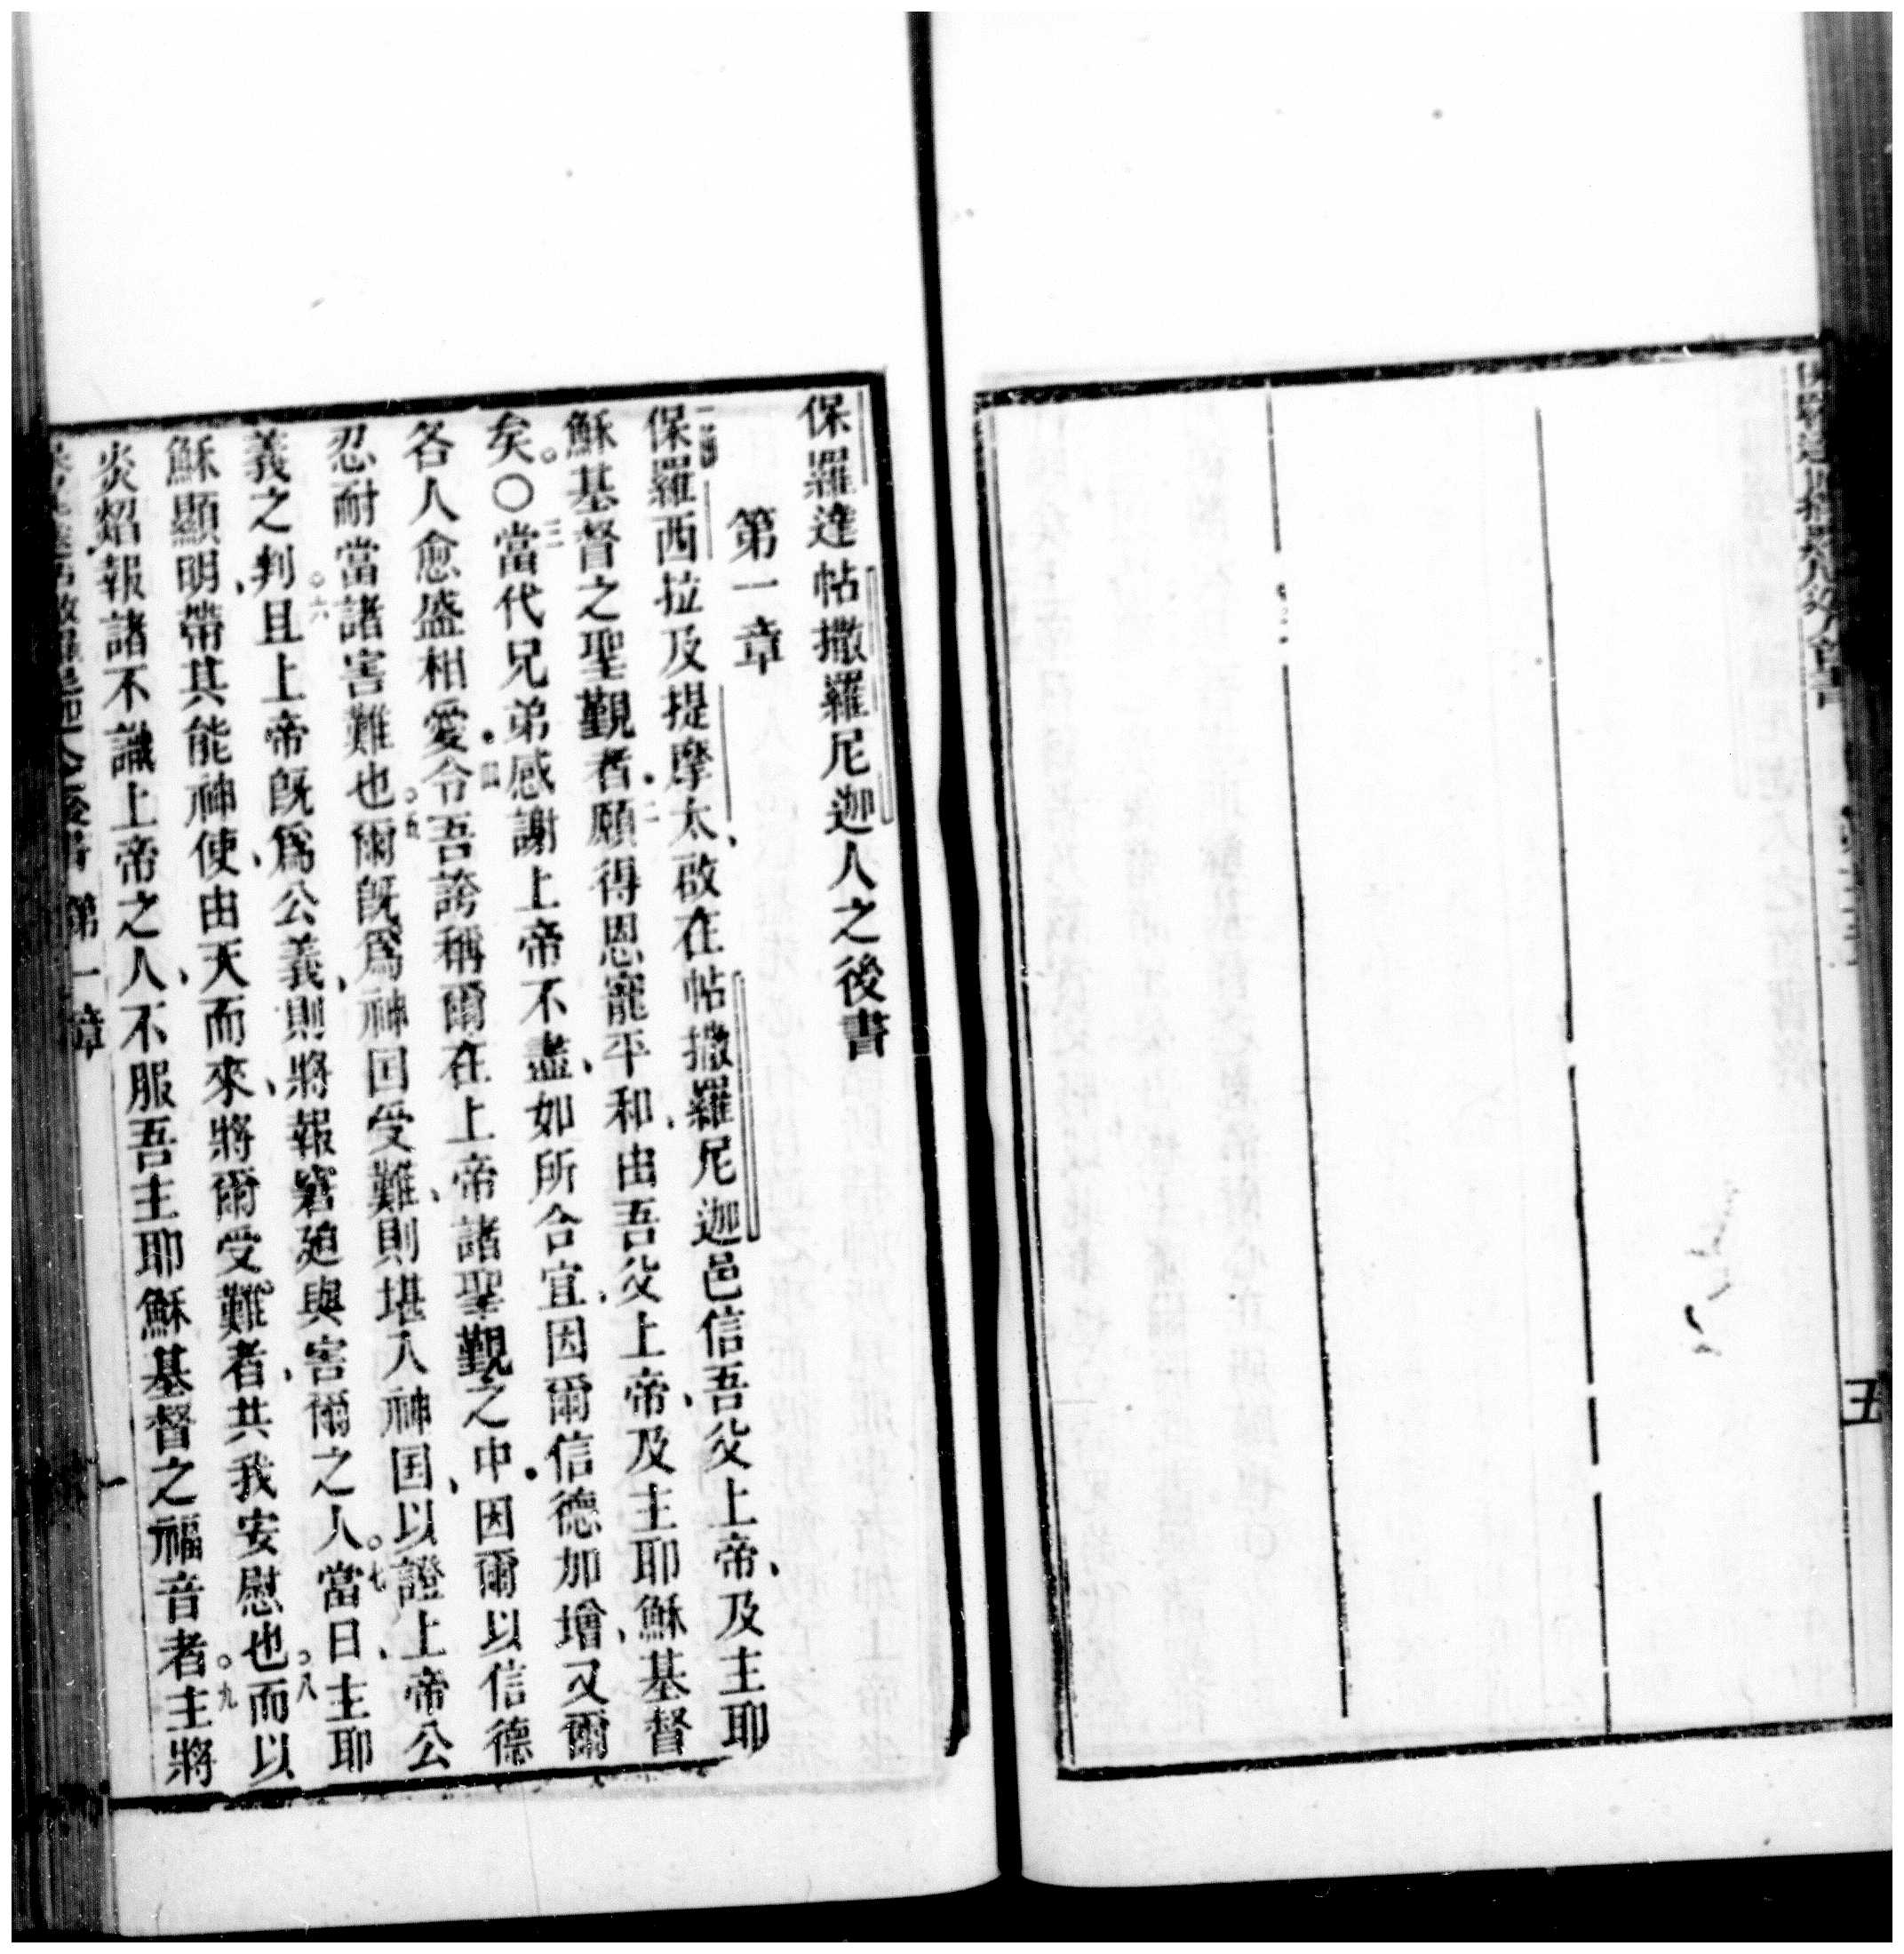 五
保羅達帖撒羅尼迦人之後書
第一章
保羅西拉及提摩太、啟在帖撒羅尼迦邑信吾父上帝、及主耶
穌基督之聖觀者・二願得恩寵平和、由吾父上帝、及主耶穌基督
矣。〇三當代兄弟感謝上帝不盡、如所合宜、因爾信德加增、又爾
各人愈盛相愛・四令吾誇稱爾在上帝諸聖觀之中・因爾以信德
忍耐當諸害難也。五爾既爲神国受難、則堪入神国、以證上帝公
義之判。六且上帝既爲公義、則將報窘廹與害爾之人。七當日、主耶
穌顯明、帶其能神使、由天而來、將爾受難者、共我安慰也。八而以
炎焰報諸不識上帝之人、不服吾主耶穌基督之福音者。九主將
後書 第一章 一